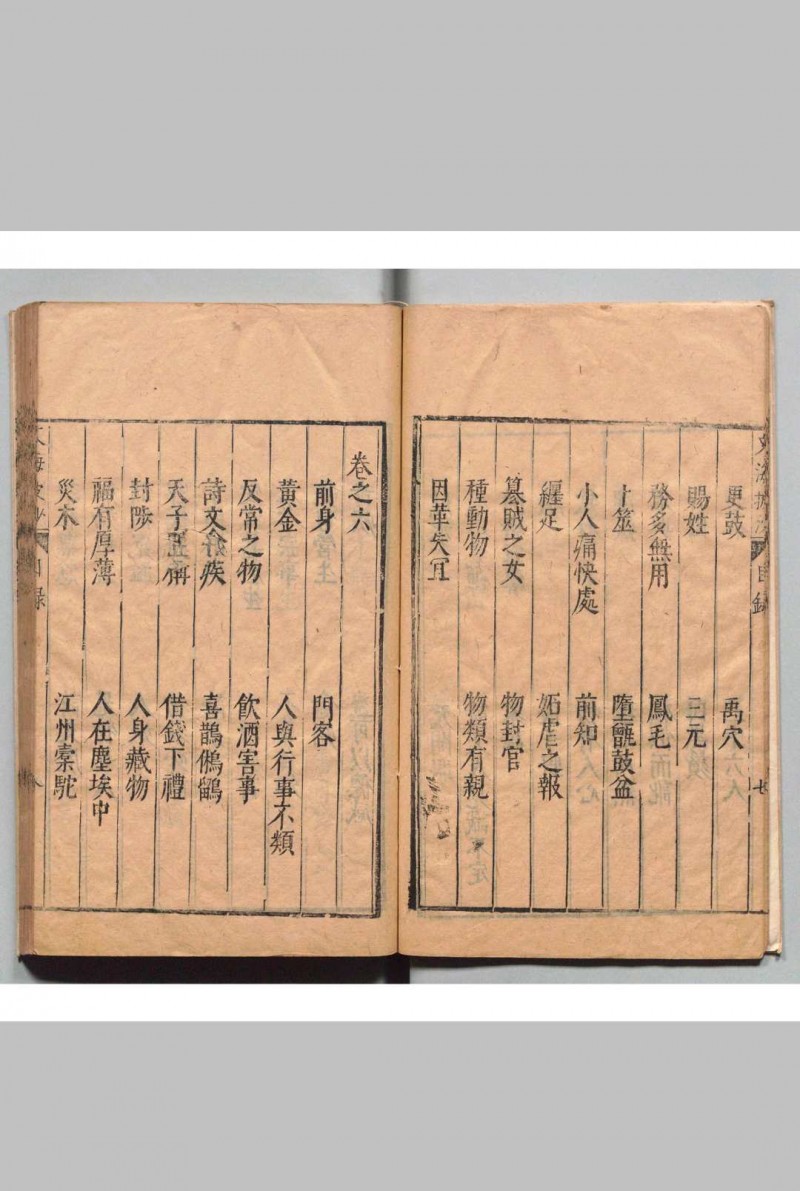 更鼓 禹穴
賜姓 三元
務多無用 鳳毛
卜筮 墮甑鼓盆
小人痛快處 前知
纏足 妬虐之報
篡賊之女 物封官
種動物 物類有親
因革失冝
卷之六
前身 門客
黃金 人與行事不類
反常之物 飲酒害事
詩文 疾 喜鵲鵂鶹
天子 借錢下禮
封陟 人身藏物
福有厚薄 人在塵埃中
災木 江州槖駝
目錄 八